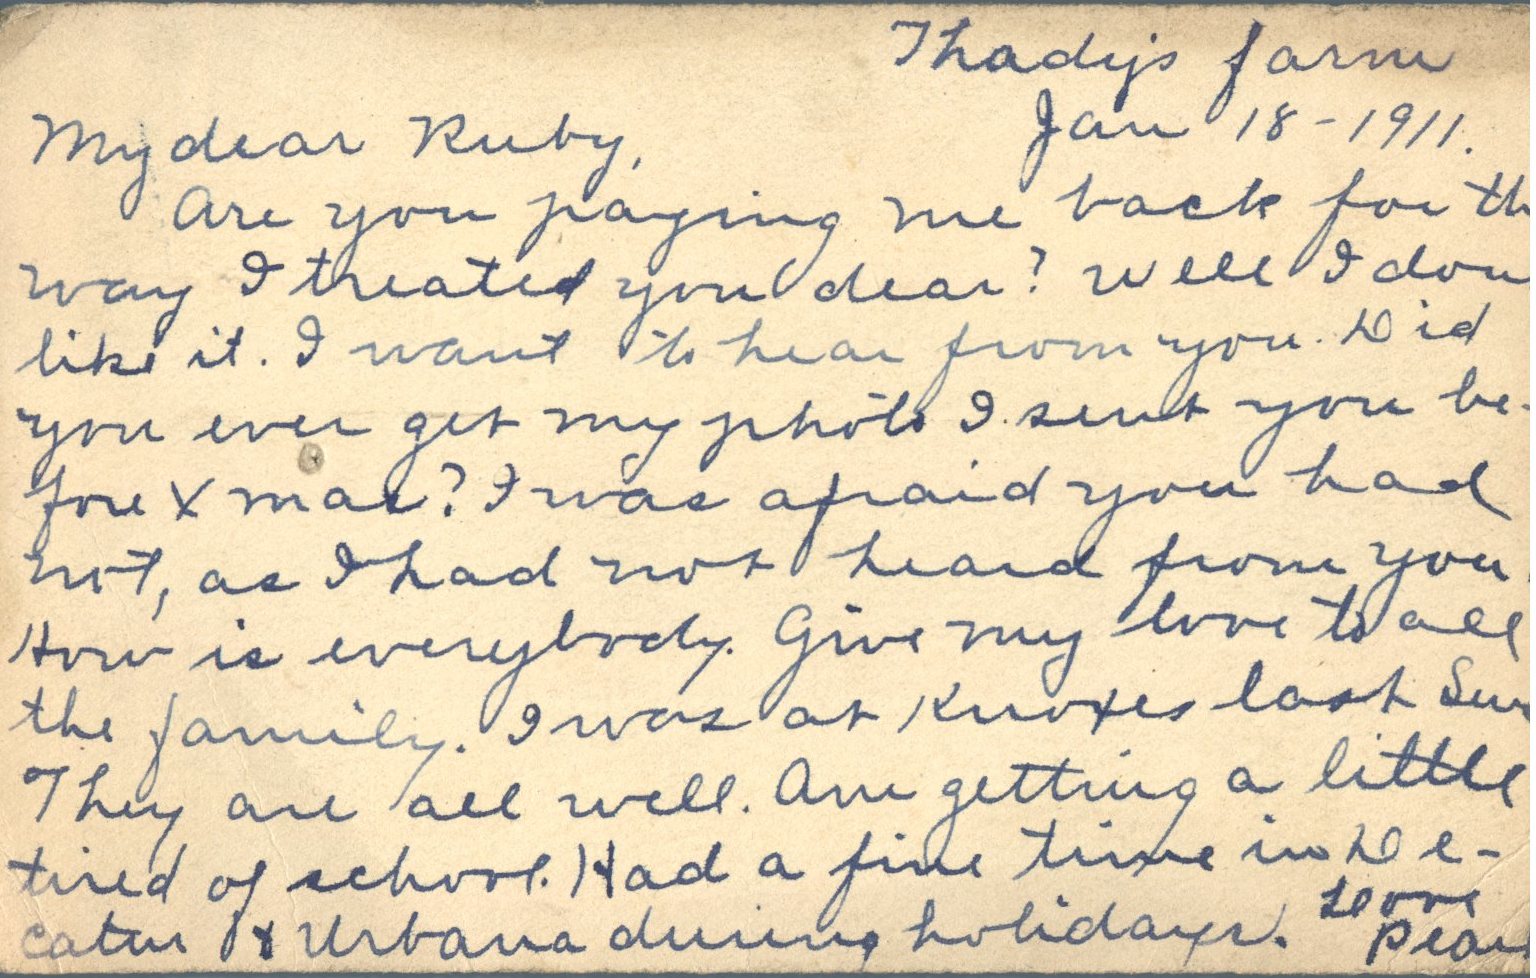 Thady's farm
Jan 18-1911.
My dear Ruby,
Are you paying me back for th
way I treated you dear? Well I don
like it. I want to hear from you. Did
you ever get my photo I sent you be-
fore Xmas? I was afraid you had
not, as I had not heard from you.
How is everybody. Give my love to all
the family. I was at Knoxes last Sun
They are all well. Am getting a little
tired of school. Had a fine time in De-
catur & Urbana during holidays.
Love
Pear